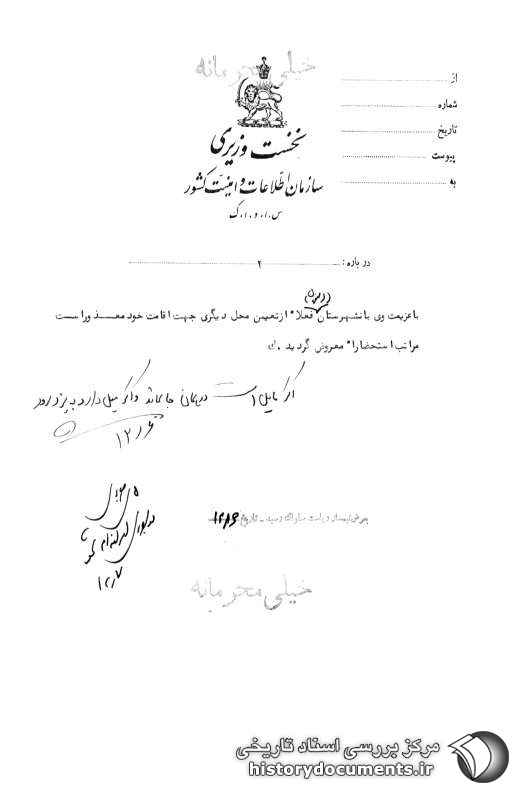 خیلی محرمانه
نخست وزیری
سازمان اطلاعات و امنیت کشور
س.ا.و.ا.ک
از
شماره
تاریخ
پیوست
به
درباره: ۲
باعزیمت وی بانشهرستان فعلاً از تعیین محل دیگری جهت اقامت خود معذور است
مراتب استحضاراً معروض گردید.
اگر مایل است در همان جا بماند و اگر میل دارد به یزد رود
۱۲/۶
بعرض تیمسار ریاست ساواک رسید - تاریخ
۱۲/۶
۱۲/۷
خیلی محرمانه
مرکز بررسی اسناد تاریخی
historydocuments.ir